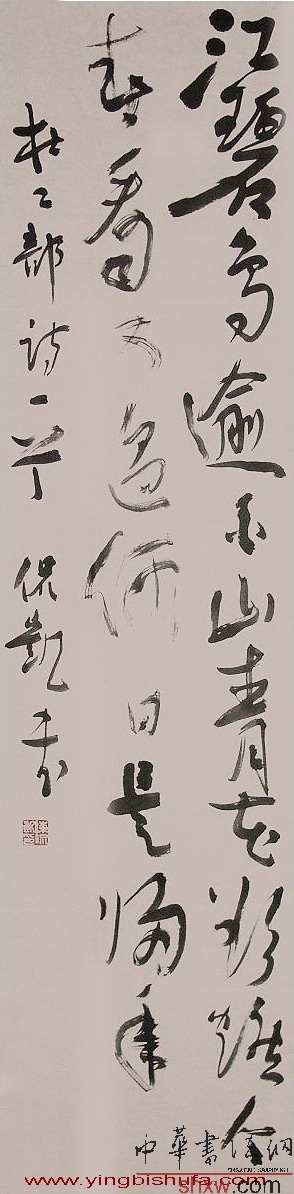 江碧鳥逾白山青花欲燃今
春看又過何日是歸年
杜工部詩一首 保凱書
中華書法網
www.yingbishufa.com
shxw.com